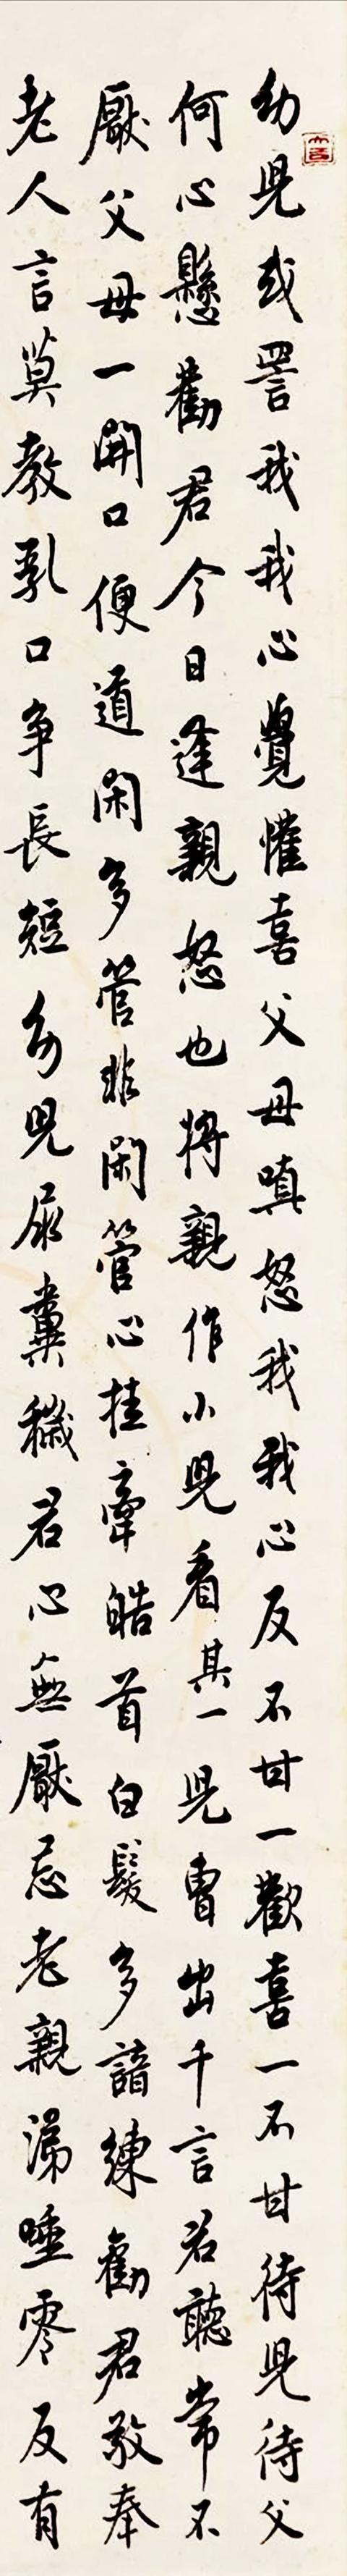 幼兒或詈我我心覺懽喜父母嗔怒我我心反不甘一歡喜一不甘待兒待父
何心懸勸君今日逢親怒也將親作小兒看其一兒曹出千言君聽常不
厭父母一開口便道閑多管非閑管心挂牽皓首白髮多諳練勸君敬奉
老人言莫教乳口争長短幼兒尿糞穢君心無厭忌老親涕唾零反有